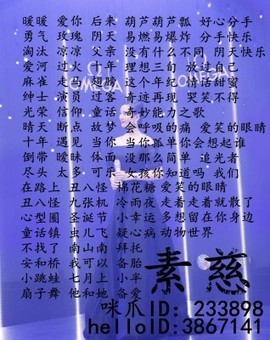 暖暖 爱你 后来 葫芦葫芦瓢 好心分手
勇气 玫瑰 阴天 易燃易爆炸 分手快乐
淘汰 凉凉 父亲 没有什么不同 阴天快乐
爱河 过火 十年 理想三旬 放过自己
麻雀 走马 翅膀 这个年纪 情话甜蜜
绅士 演员 过客 奇迹再现 哭笑不得
光荣 信仰 童话 奇妙能力之歌
晴天 断点 故梦 会呼吸的痛 爱笑的眼睛
十年 遇见 当你 当你孤单你会想起谁
倒带 暧昧 体面 没那么简单 追光者
尽头 太多 可乐 女孩你知道吗 我们
在路上 丑八怪 棉花糖 爱笑的眼睛
丑八怪 九张机 冷雨夜 走着走着就散了
心型圈 圣诞节 小幸运 多想留在你身边
童话镇 虫儿飞 疑心病 动物世界
不找了 南山南 拜托
安和桥 我可以 备胎
小跳蛙 七月上 小半
扇子舞 他和她 备爱
素慈
咪爪ID: 233898
helloID: 3867141
OMEGA